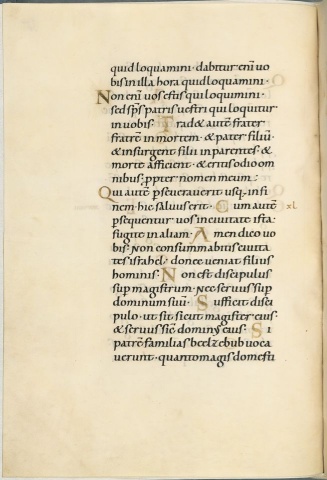 quid loquamini· dabitur eni̅ uo
bis in illa hora quid loquamini·
Non eni̅ uos estis qui loquimini·
sed sp̅s patris uestri qui loquitur
in uobis· Trad& aute̅ frater
fratre̅ in mortem· & pater filiu̅·
& insurgent filii in parentes· &
morte afficient· & eritis odio om
nibus· ꝓpter nomen meum·
Qui aute̅ ꝑseuerauerit usq; in fi
nem· hic saluus erit· Cum aute̅ xl.
ꝑsequentur uos in ciuitate ista·
fugite in aliam· Amen dico uo
bis· Non consummabitis ciuita
tes israhel· donec ueniat filius
hominis· Non est discipulus
sup magistrum· nec seruus sup
dominum suu̅· Sufficit disci
pulo· ut sit sicut magister eius·
& seruus sic̅ dominus eius· Si
patre̅ familias beelzebub uoca
uerunt· quanto magis domesti